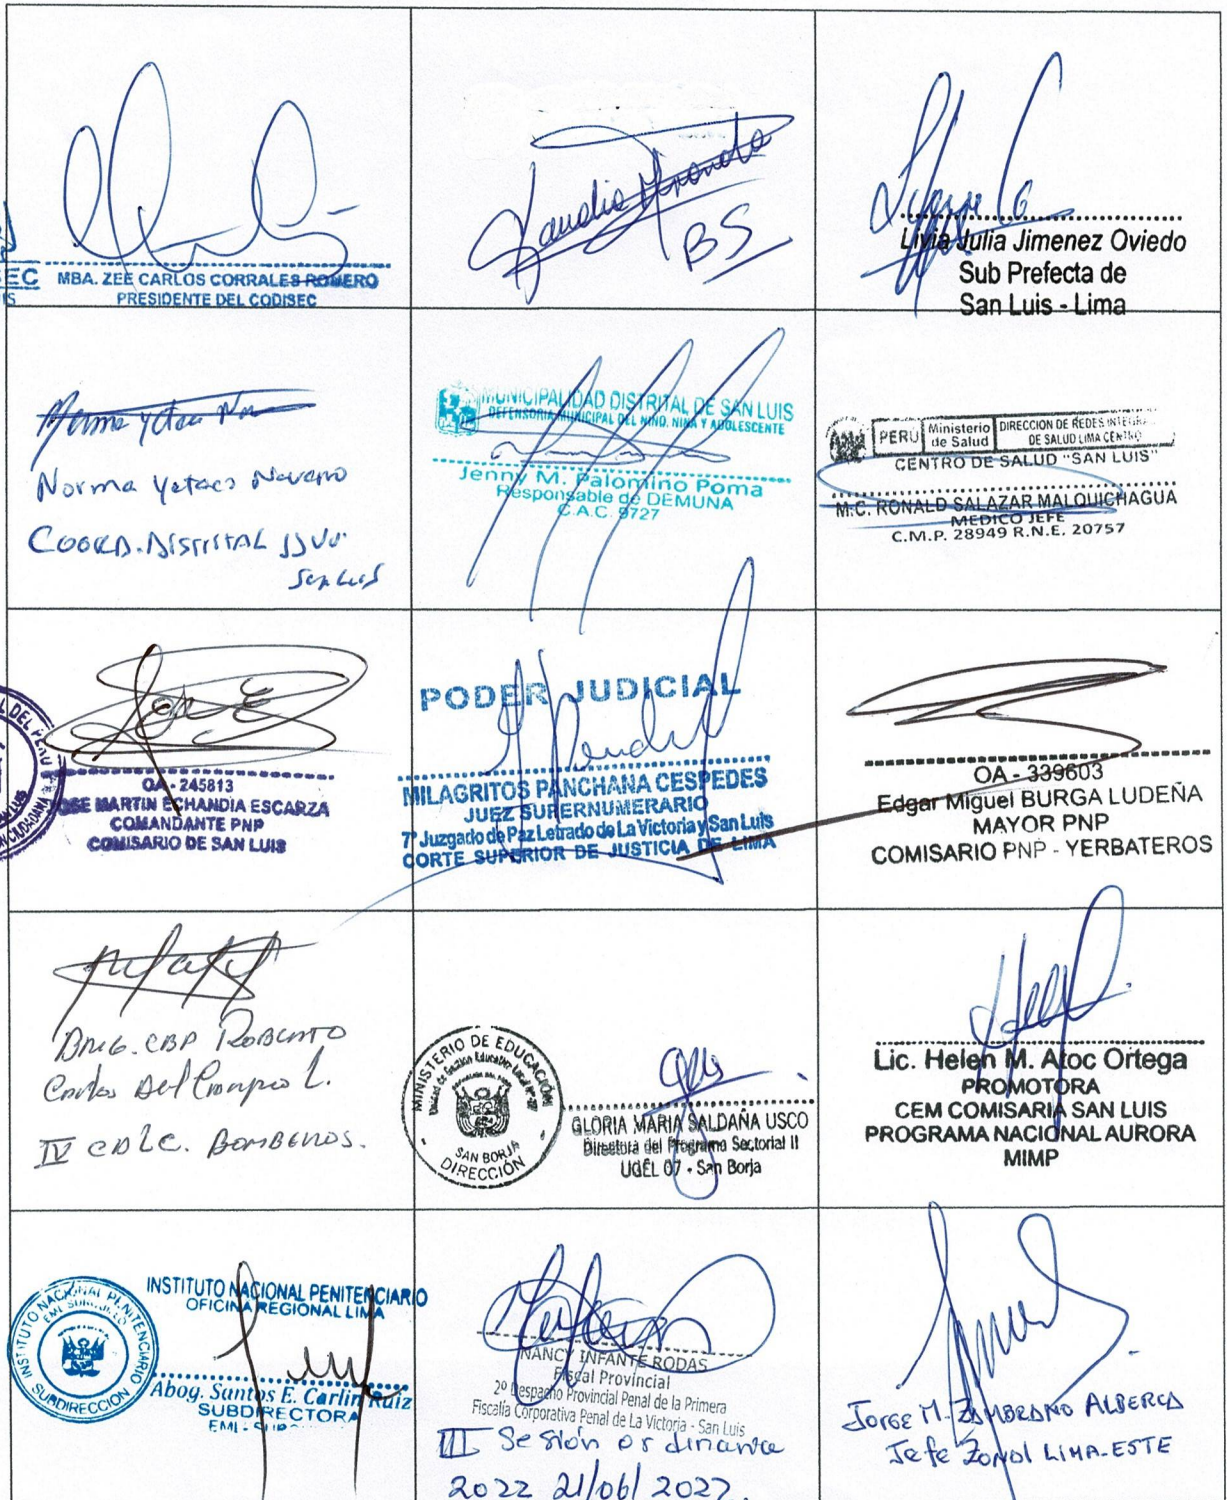 SEC
MBA. ZEE CARLOS CORRALES ROMERO
PRESIDENTE DEL CODISEC
Claudia Miranda
BS
Livia Julia Jimenez Oviedo
Sub Prefecta de
San Luis - Lima
Norma Yetaes Navarro
COORD. DISTRITAL JJVV.
San Luis
MUNICIPALIDAD DISTRITAL DE SAN LUIS
DEFENSORIA MUNICIPAL DEL NIÑO, NIÑA Y ADOLESCENTE
Jenny M. Palomino Poma
Responsable de DEMUNA
C.A.C. 9727
PERÚ Ministerio de Salud
DIRECCION DE REDES INTEGRA
DE SALUD LIMA CENTRO
CENTRO DE SALUD "SAN LUIS"
M.C. RONALD SALAZAR MALQUICHAGUA
MEDICO JEFE
C.M.P. 28949 R.N.E. 20757
OA - 245813
OSE MARTIN ECHANDIA ESCARZA
COMANDANTE PNP
COMISARIO DE SAN LUIS
PODER JUDICIAL
MILAGRITOS PANCHANA CESPEDES
JUEZ SUPERNUMERARIO
7° Juzgado de Paz Letrado de La Victoria y San Luis
CORTE SUPERIOR DE JUSTICIA DE LIMA
OA - 339603
Edgar Miguel BURGA LUDEÑA
MAYOR PNP
COMISARIO PNP - YERBATEROS
Brig. CBP ROBERTO
Carlos Del Campo L.
IV CDLC. BOMBEROS.
MINISTERIO DE EDUCACIÓN
Unidad de Gestión Educativa Local N° 07
SAN BORJA
DIRECCIÓN
GLORIA MARIA SALDAÑA USCO
Directora del Programa Sectorial II
UGEL 07 - San Borja
Lic. Helen M. Atoc Ortega
PROMOTORA
CEM COMISARIA SAN LUIS
PROGRAMA NACIONAL AURORA
MIMP
INSTITUTO NACIONAL PENITENCIARIO
SUBDIRECCION
INSTITUTO NACIONAL PENITENCIARIO
OFICINA REGIONAL LIMA
Abog. Santos E. Carlin Ruiz
SUBDIRECTORA
NANCY INFANTE RODAS
Fiscal Provincial
2º Despacho Provincial Penal de la Primera
Fiscalía Corporativa Penal de La Victoria - San Luis
III Sesión ordinaria
2022 21/06/2022.
Jorge M. ZAMBRANO ALBERCA
Jefe Zonal LIMA-ESTE